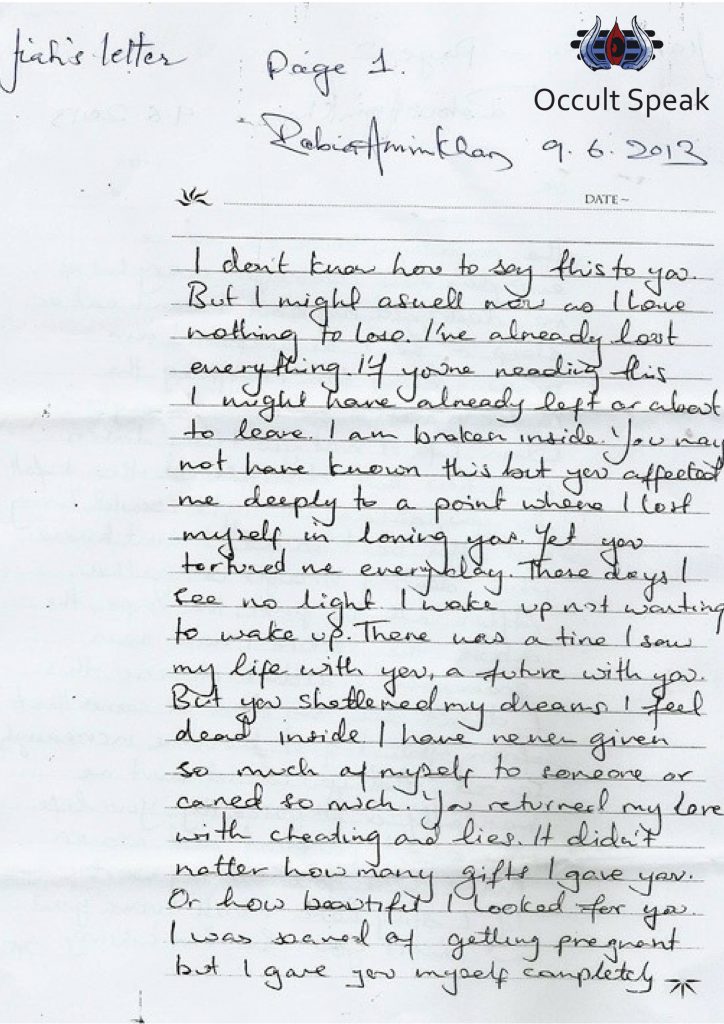 Jiah's letter
Page 1.
Occult Speak
Rabia Amin Khan 9.6.2013
DATE~
I don't know how to say this to you.
But I might aswell now as I have
nothing to lose. I've already lost
everything. If you're reading this
I might have already left or about
to leave. I am broken inside. You may
not have known this but you affected
me deeply to a point where I lost
myself in loving you. Yet you
tortured me everyday. These days I
see no light I wake up not wanting
to wake up. There was a time I saw
my life with you, a future with you.
But you shattered my dreams. I feel
dead inside. I have never given
so much of myself to someone or
cared so much. You returned my love
with cheating and lies. It didn't
matter how many gifts I gave you.
Or how beautiful I looked for you.
I was scared of getting pregnant
but I gave you myself completely